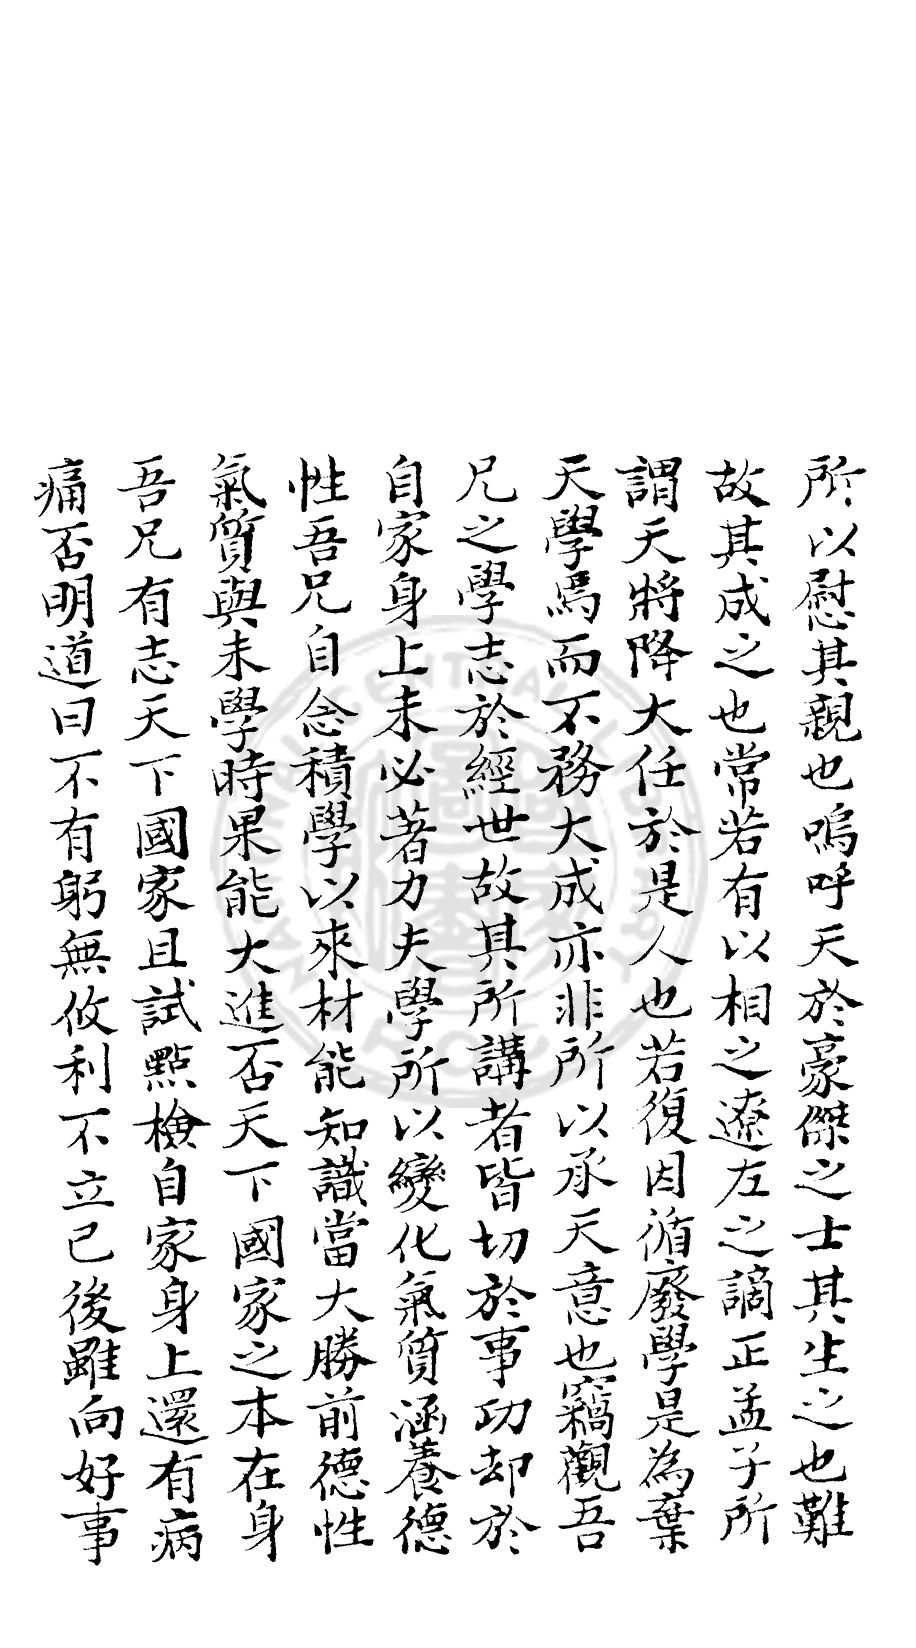 所以慰其親也嗚呼天於豪傑之士其生之也難
故其成之也常若有以相之遼左之謫正孟子所
謂天將降大任於是人也若復因循廢學是為棄
天學焉而不務大成亦非所以承天意也竊觀吾
兄之學志於經世故其所講者皆切於事功却於
自家身上未必著力夫學所以變化氣質涵養德
性吾兄自念積學以來材能知識當大勝前德性
氣質與未學時果能大進否天下國家之本在身
吾兄有志天下國家且試點檢自家身上還有病
痛否明道曰不有躬無攸利不立己後雖向好事